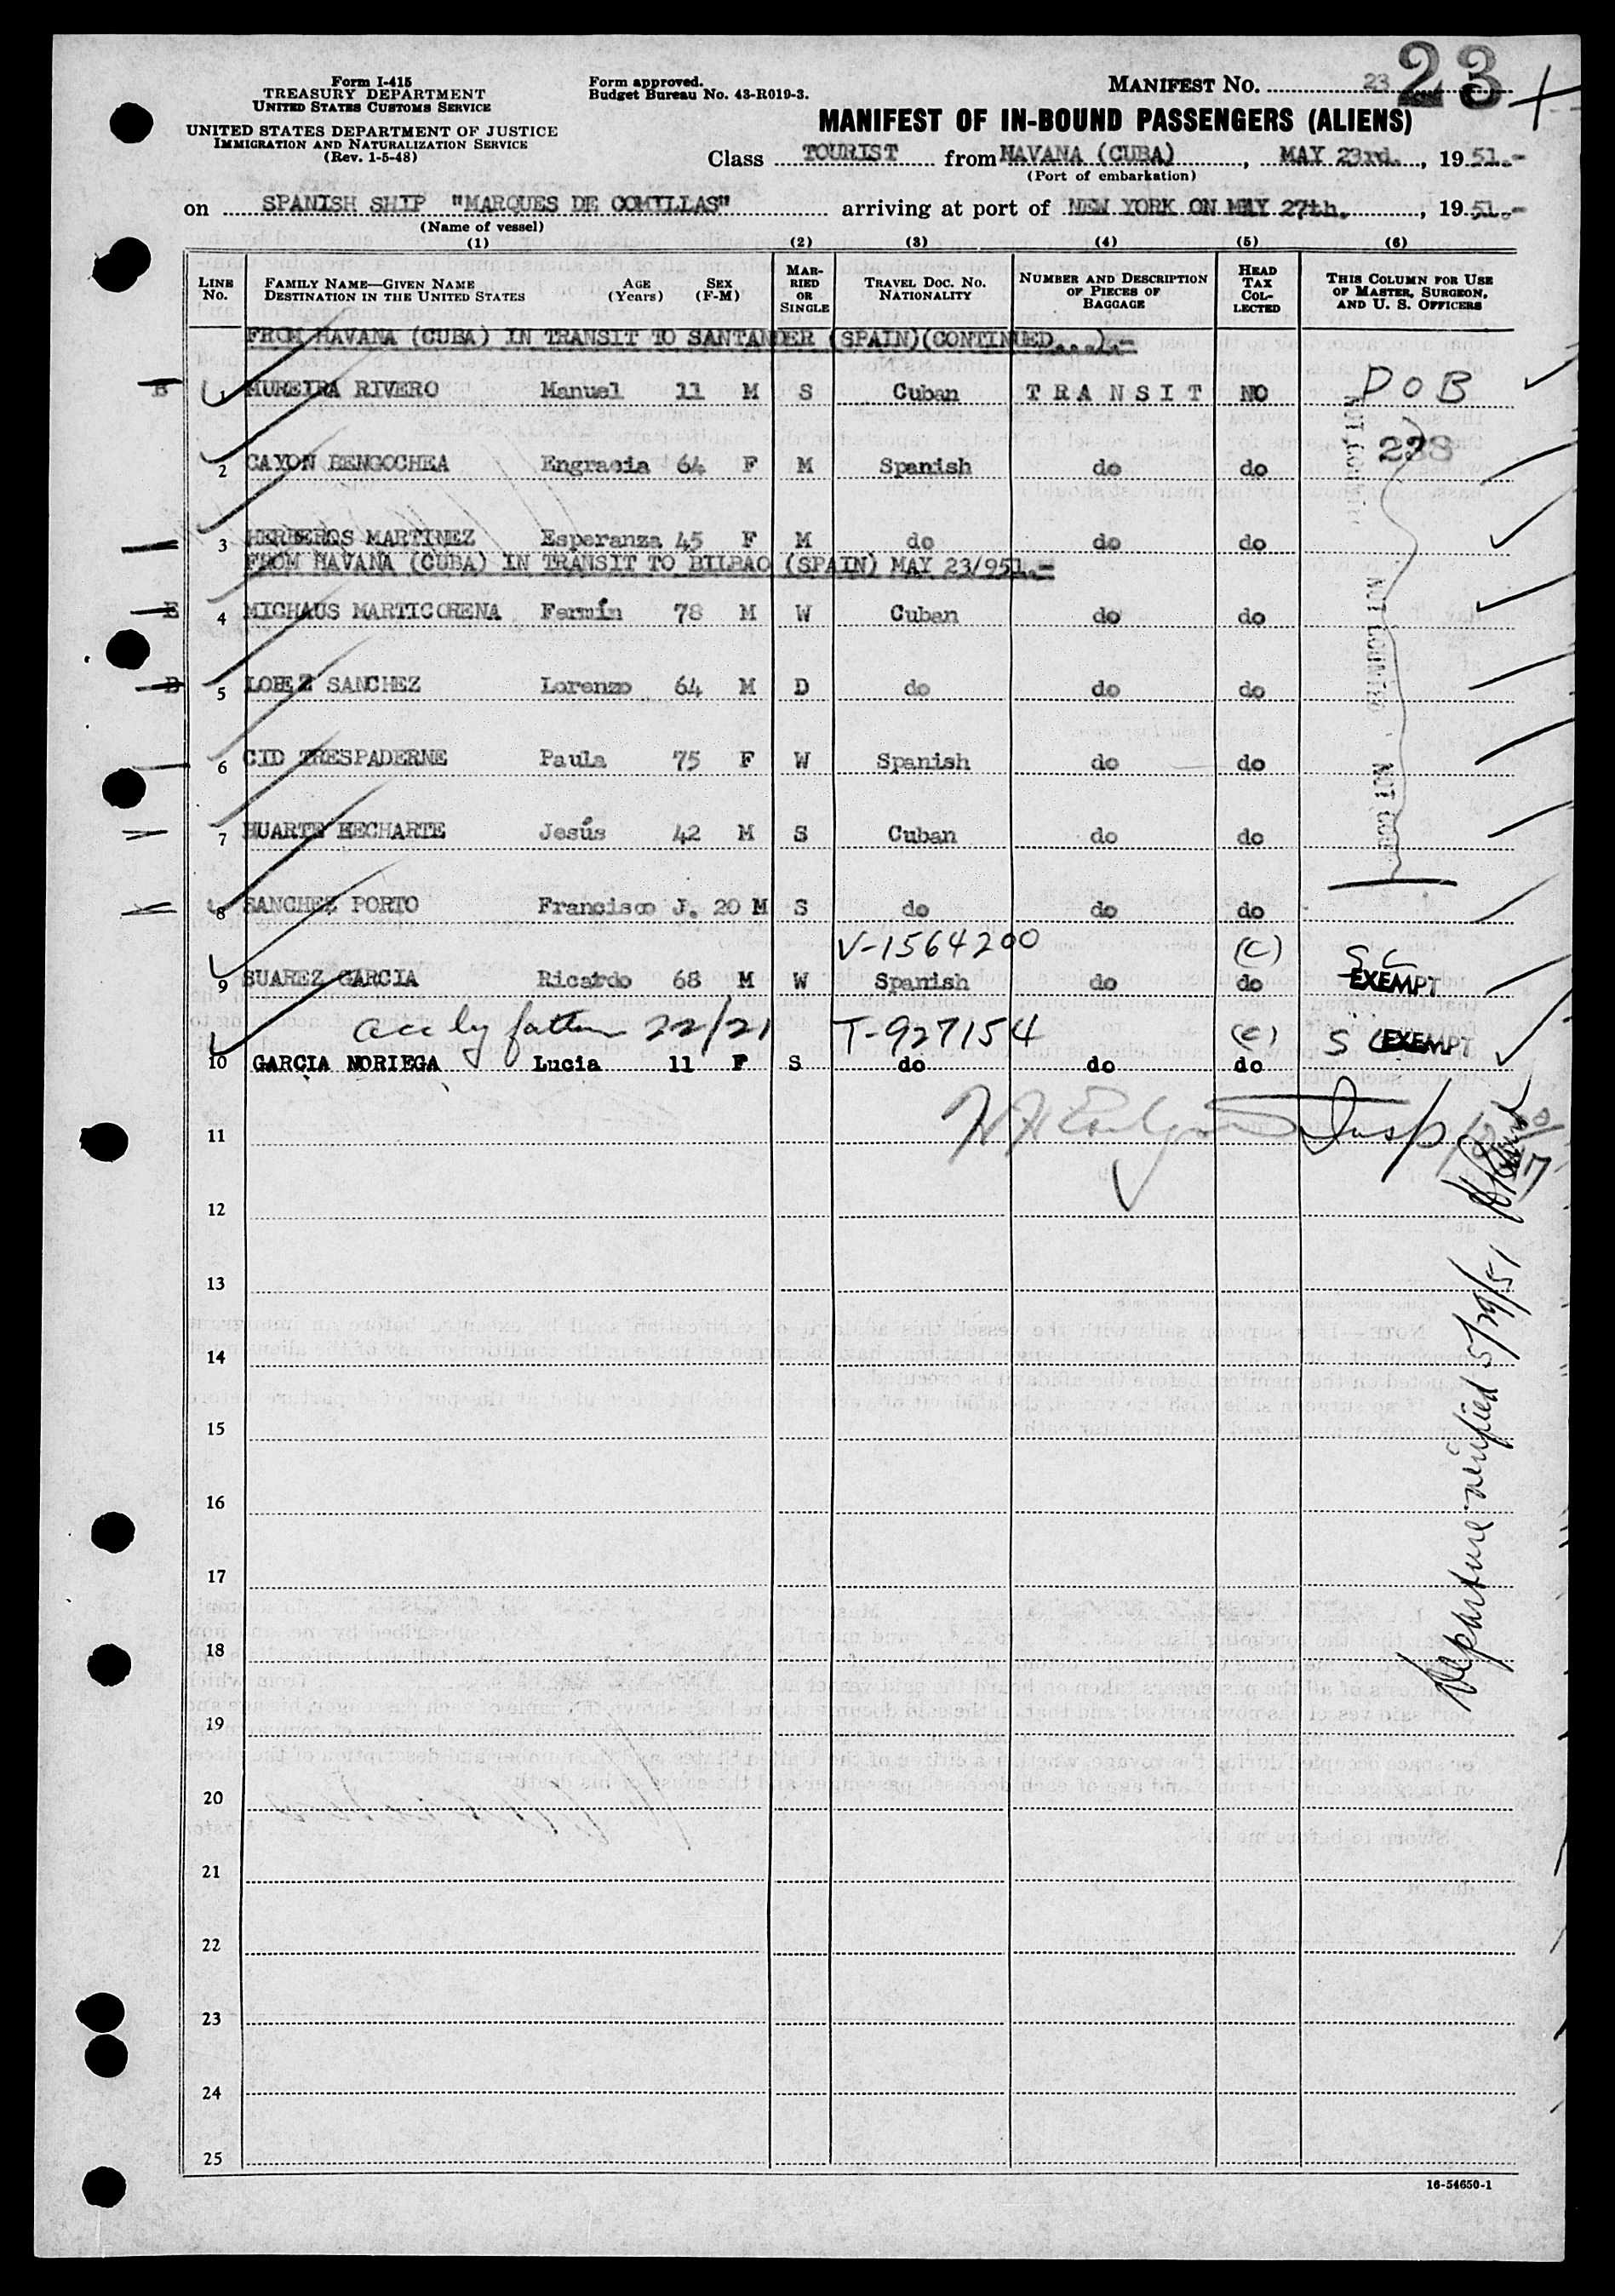 23
Form I-415
TREASURY DEPARTMENT
UNITED STATES CUSTOMS SERVICE
UNITED STATES DEPARTMENT OF JUSTICE
IMMIGRATION AND NATURALIZATION SERVICE
(Rev. 1-5-48)
Form approved.
Budget Bureau No. 43-R019-3.
MANIFEST NO. 23
MANIFEST OF IN-BOUND PASSENGERS (ALIENS)
Class TOURIST from HAVANA (CUBA), MAY 23rd., 19 51.-
(Port of embarkation)
on SPANISH SHIP "MARQUES DE COMILLAS" arriving at port of NEW YORK ON MAY 27th., 19 51.-
(Name of vessel)
(1) (2) (3) (4) (5) (6)
LINE NO. FAMILY NAME—GIVEN NAME DESTINATION IN THE UNITED STATES AGE (Years) SEX (F-M) MARRIED OR SINGLE TRAVEL DOC. NO. NATIONALITY NUMBER AND DESCRIPTION OF PIECES OF BAGGAGE HEAD TAX COLLECTED THIS COLUMN FOR USE OF MASTER, SURGEON, AND U. S. OFFICERS
FROM HAVANA (CUBA) IN TRANSIT TO SANTANDER (SPAIN)(CONTINUED...).-
B 1 MUREIRA RIVERO Manuel 11 M S Cuban T R A N S I T NO D O B
238
2 CAYON BENGOCHEA Engracia 64 F M Spanish do do
3 HERREROS MARTINEZ Esperanza 45 F M do do do
FROM HAVANA (CUBA) IN TRANSIT TO BILBAO (SPAIN) MAY 23/951.-
4 MICHAUS MARTICORENA Fermín 78 M W Cuban do do
B 5 LOPEZ SANCHEZ Lorenzo 64 M D do do do
6 CID TRESPADERNE Paula 75 F W Spanish do do
7 HUARTE HECHARTE Jesús 42 M S Cuban do do
8 SANCHEZ PORTO Francisco J. 20 M S do do do
V-1564200 (C) S C
9 SUAREZ GARCIA Ricardo 68 M W Spanish do do EXEMPT
acc by father 22/21 T-927154 (C) S C EXEMPT
10 GARCIA NORIEGA Lucia 11 F S do do do
11
12
13
14
15
16
17
18
19
20
21
22
23
24
25
Departure verified 5/29/51
16-54650-1